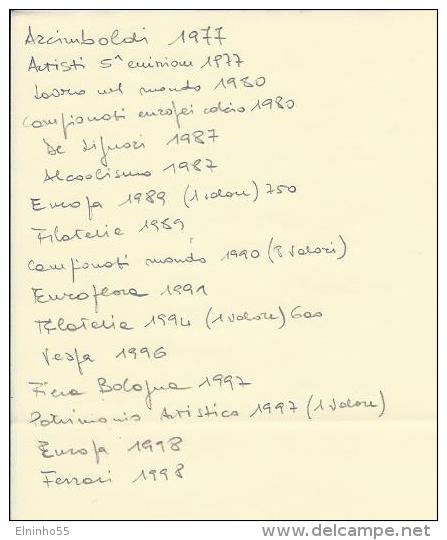 Arcimboldi 1977
Artisti 5ª emissione 1977
Lavoro nel mondo 1980
Campionati europei calcio 1980
De Liguori 1987
Alcoolismo 1987
Europa 1989 (1 valore) 750
Filatelia 1989
Campionati mondo 1990 (8 valori)
Euroflora 1991
Filatelia 1994 (1 valore) 600
Vespa 1996
Fiera Bologna 1997
Patrimonio Artistico 1997 (1 valore)
Europa 1998
Ferrari 1998
Elninho55
www.delcampe.net